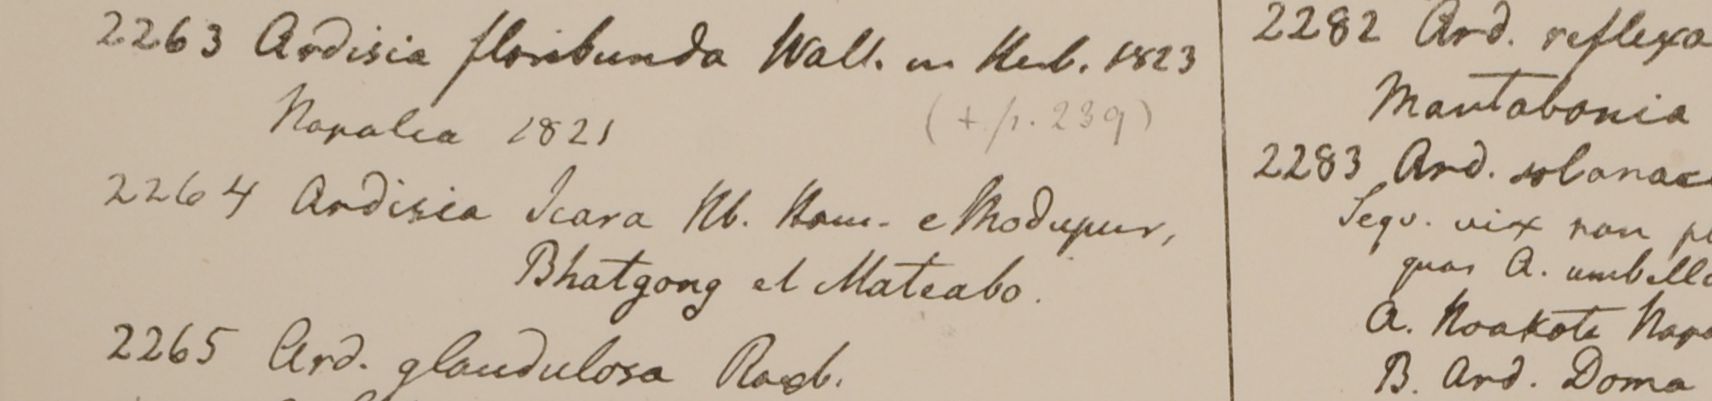 2263 Ardisia floribunda Wall. in Herb. 1823
Napalia 1821 (+ p. 239)
2264 Ardisia Icara Hb. Ham. e Modupur,
Bhatgong et Mateabo.
2265 Ard. glandulosa Roxb.
2282 Ard. reflexa
Martabania
2283 Ard. solanac
Seqv. vix non
quas A. umbella
A. Noakote Napa
B. Ard. Doma